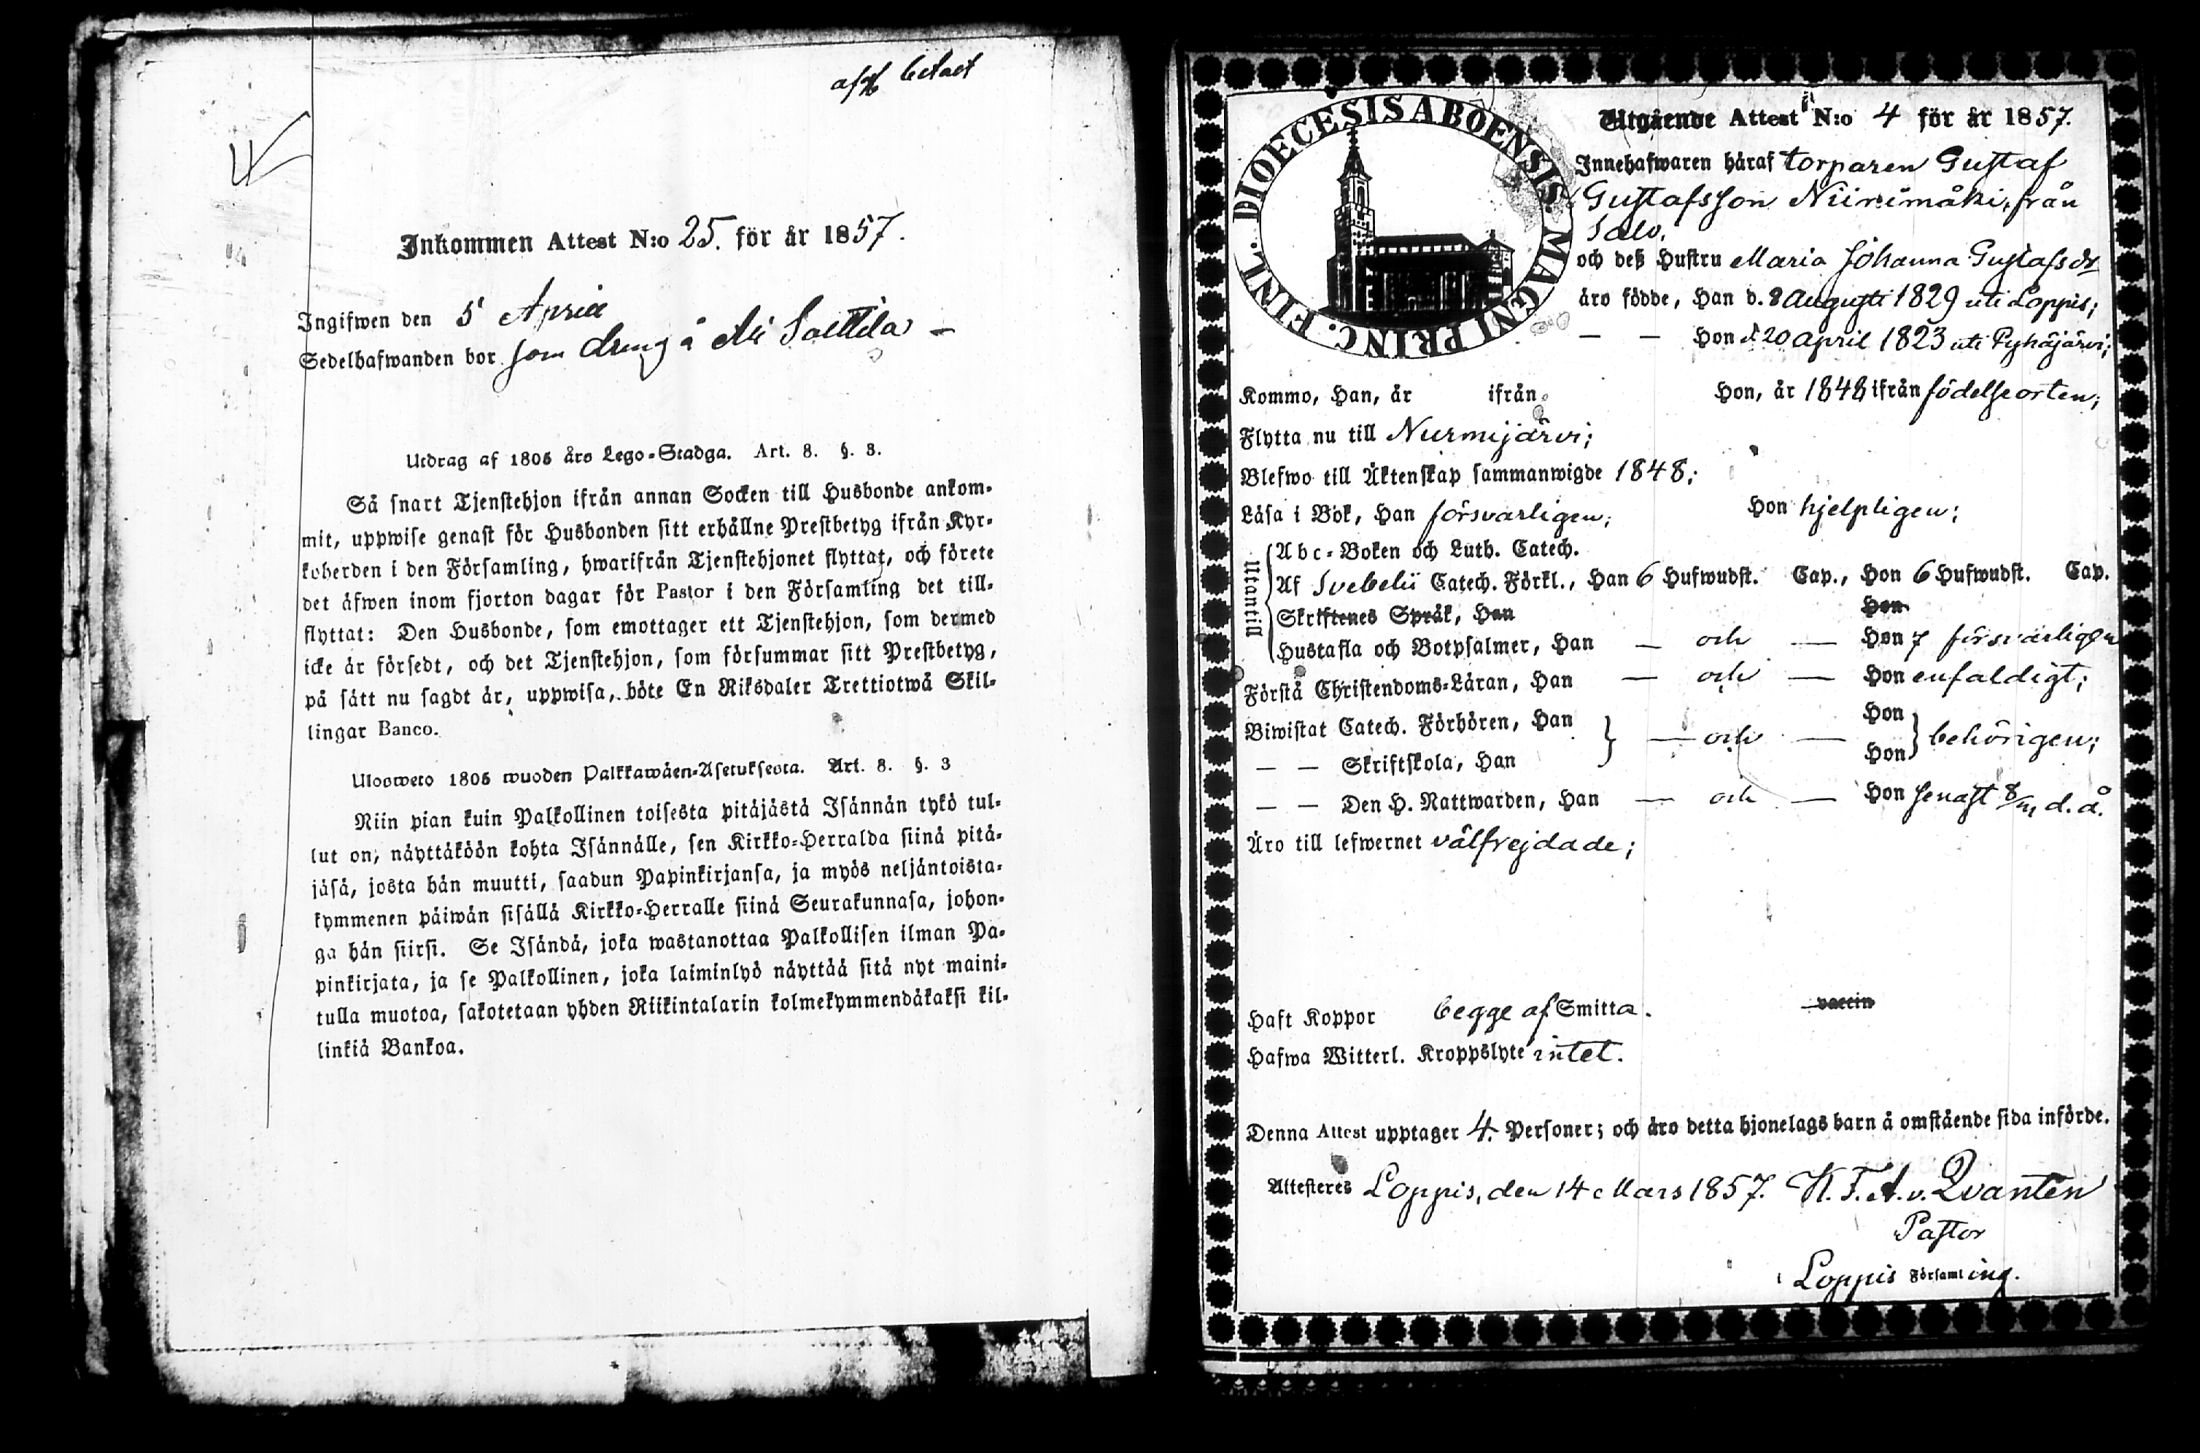 betalt
Inkommen Attest N:o 25. för år 1857.
Ingifwen den 5 April
Sedelhafwanden bor som dreng å Ali Solttila –
Utdrag af 1805 års Lego-Stadga. Art. 8. §. 3.
Så snart Tjenstehjon ifrån annan Socken till Husbonde ankom-
mit, uppwise genast för Husbonden sitt erhållne Prestbetyg ifrån Kyr-
koherden i den Församling, hwarifrån Tjenstehjonet flyttat, och förete
det äfwen inom fjorton dagar för Pastor i den Församling det till-
flyttat: Den Husbonde, som emottager ett Tjenstehjon, som dermed
icke är försedt, och det Tjenstehjon, som försummar sitt Prestbetyg,
på sätt nu sagdt är, uppwisa, böte En Riksdaler Trettiotwå Skil-
lingar Banco.
Ulosweto 1805 wuoden Palkkawäen-Asetuksesta. Art. 8. §. 3
Niin pian kuin Palkollinen toisesta pitäjästä Isännän tykö tul-
lut on, näyttäköön kohta Isännälle, sen Kirkko-Herralda siinä pitä-
jäsä, josta hän muutti, saadun Papinkirjansa, ja myös neljäntoista-
kymmenen päiwän sisällä Kirkko-Herralle siinä Seurakunnasa, johon-
ga hän siirsi. Se Isändä, joka wastanottaa Palkollisen ilman Pa-
pinkirjata, ja se Palkollinen, joka laiminlyö näyttää sitä nyt maini-
tulla muotoa, sakotetaan yhden Riikintalarin kolmekymmendäkaksi kil-
linkiä Bankoa.
DIOECESIS ABOENSIS. MAGNI PRINC. FINL.
Utgående Attest N:o 4 för år 1857.
Innehafwaren häraf torparen Gustaf
Gustafsson Niinimäki, från
Salo,
och deß Hustru Maria Johanna Gustafsdr
äro födde, Han d. 8 Augusti 1829 uti Loppis;
— — Hon d 20 April 1823 uti Pyhäjärvi;
Kommo, Han, år ifrån Hon, år 1848 ifrån födelseorten;
Flytta nu till Nurmijärvi;
Blefwo till Äktenskap sammanwigde 1848;
Läsa i Bok, Han försvarligen; Hon hjelpligen;
Utantill
Abc-Boken och Luth. Catech.
Af Svebelii Catech. Förkl., Han 6 Hufwudst. Cap., Hon 6 Hufwudst. Cap.
Skriftenes Språk, Han Hon
Hustafla och Botpsalmer, Han — och — Hon 7 försvarligen
Förstå Christendoms-Läran, Han — och — Hon enfaldigt;
Biwistat Catech. Förhören, Han — och — Hon behörigen;
— — Skriftskola, Han Hon
— — Den H. Nattwarden, Han — och — Hon senast 8/m d. å.
Äro till lefwernet välfrejdade;
Haft Koppor begge af Smitta. vaccin
Hafwa Witterl. Kroppslyte intet.
Denna Attest upptager 4. Personer; och äro detta hjonelags barn å omstående sida införde.
Attesteres Loppis, den 14 Mars 1857. K. F. A. v. Qvanten
Pastor
i Loppis Församling.